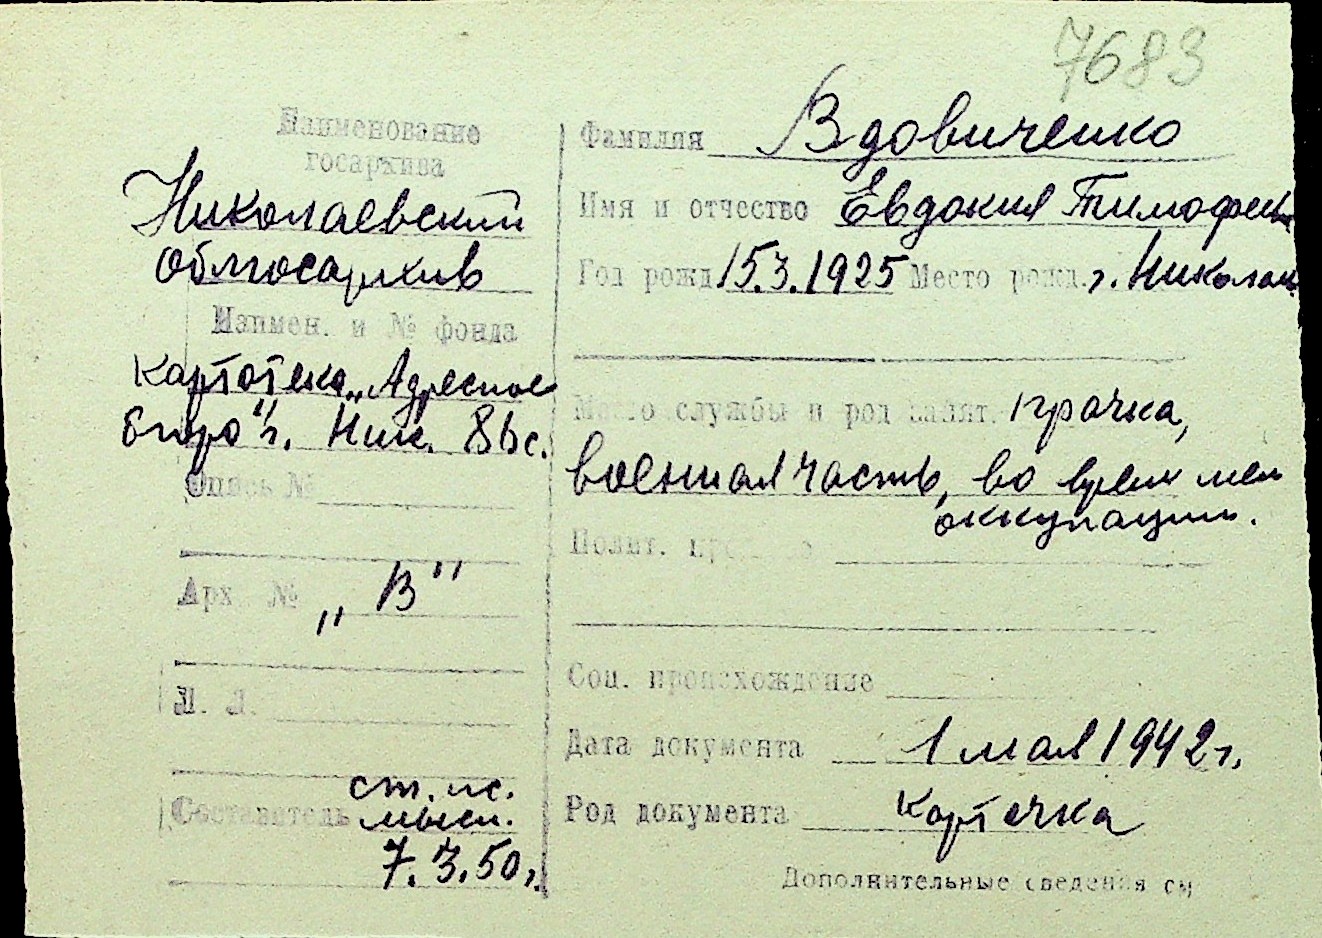 7683
Наименование
госархива
Николаевский
облгосархив
Наимен. и № фонда
картотека „Адресное
бюро" г. Ник.
Опись №
Арх. № „В"
Л. Л.
Составитель ст. ис.
7.3.50г.
Фамилия Вдовиченко
Имя и отчество Евдокия Тимофеев
Год рожд. 15.3.1925 Место рожд. г. Николаев
Место службы и род занят. прачка,
военная часть, во время нем
оккупации.
Полит.
Соц. происхождение
Дата документа 1 мая 1942 г.
Род документа Карточка
Дополнительные сведения см